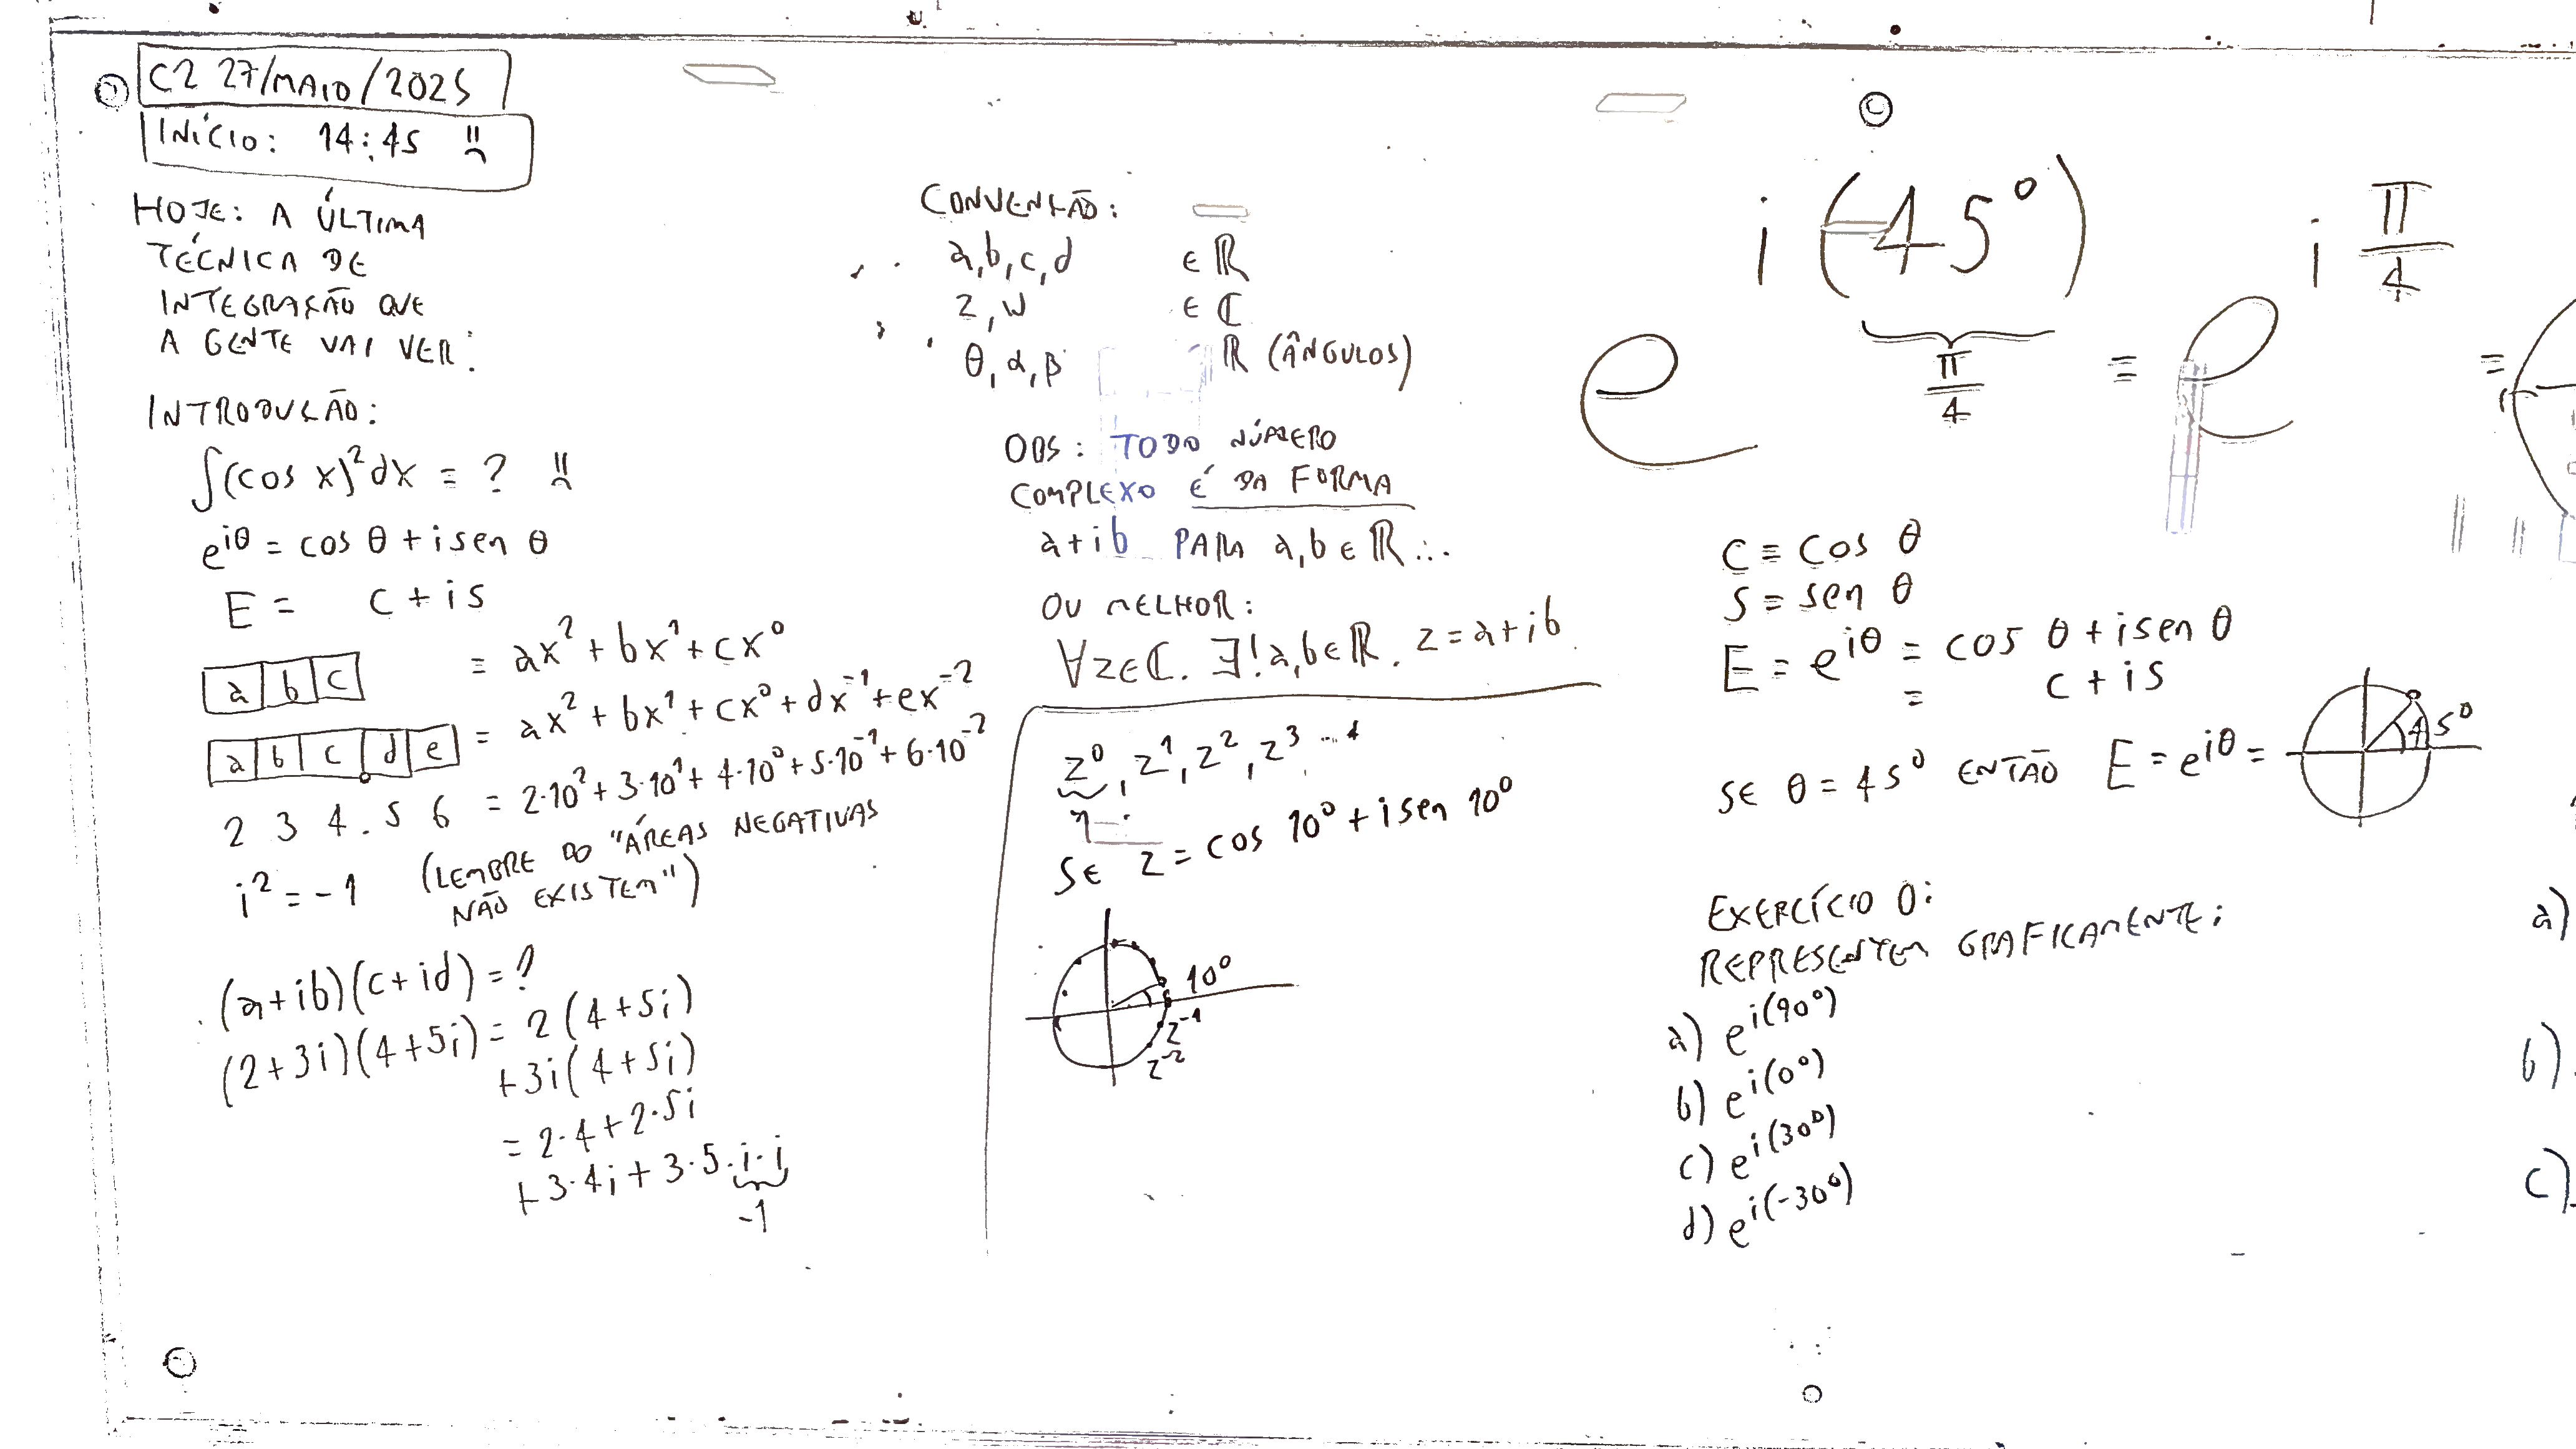 C2 27/MAIO/2025
INÍCIO: 14:45
HOJE: A ÚLTIMA
TÉCNICA DE
INTEGRAÇÃO QUE
A GENTE VAI VER:
INTRODUÇÃO:
∫(cos x)²dx = ?
e^{iθ} = cos θ + i sen θ
E = c + is
a b c = ax² + bx¹ + cx⁰
a b c . d e = ax² + bx¹ + cx⁰ + dx⁻¹ + ex⁻²
2 3 4 . 5 6 = 2·10² + 3·10¹ + 4·10⁰ + 5·10⁻¹ + 6·10⁻²
i² = -1 (LEMBRE DO "ÁREAS NEGATIVAS
NÃO EXISTEM")
(a+ib)(c+id) = ?
(2+3i)(4+5i) = 2(4+5i)
+3i(4+5i)
= 2·4 + 2·5i
+3·4i + 3·5·i·i
-1
CONVENÇÃO:
a,b,c,d ∈ ℝ
z,w ∈ ℂ
θ,α,β ℝ (ÂNGULOS)
OBS: TODO NÚMERO
COMPLEXO É DA FORMA
a+ib PARA a,b∈ℝ...
OU MELHOR:
∀z∈ℂ. ∃!a,b∈ℝ. z=a+ib
z⁰, z¹, z², z³ ...
1
SE z = cos 10° + i sen 10°
10°
z⁻¹
z⁻²
e^{i(-45°)} ≡ e^{i π/4} =
π/4
c = cos θ
s = sen θ
E = e^{iθ} = cos θ + i sen θ
= c + is
SE θ = 45° ENTÃO E = e^{iθ} = 45°
EXERCÍCIO 0:
REPRESENTEM GRAFICAMENTE:
a) e^{i(90°)}
b) e^{i(0°)}
c) e^{i(30°)}
d) e^{i(-30°)}
a)
b)
c)